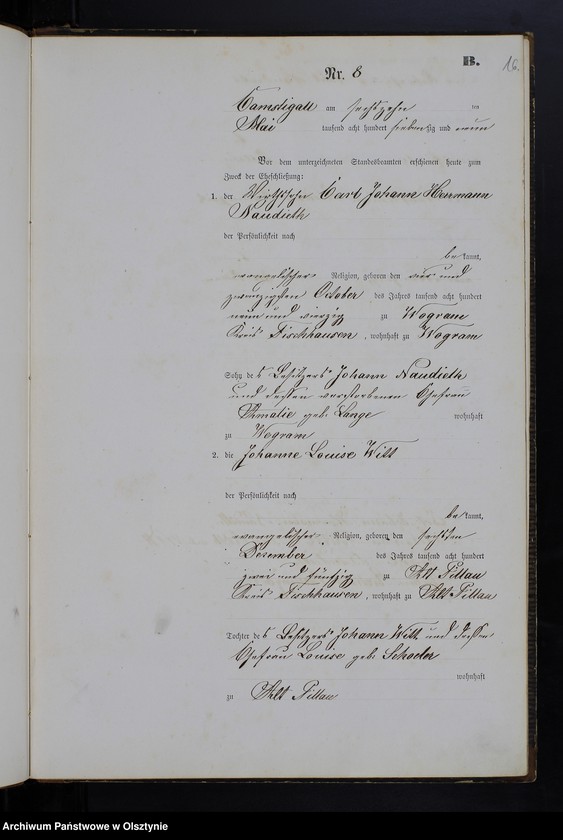 B.
16.
Nr. 8
Camstigall am sechszehn ten
Mai tausend acht hundert siebenzig und neun
Vor dem unterzeichneten Standesbeamten erschienen heute zum
Zweck der Eheschließung:
1. der Wirthssohn Carl Johann Herrmann
Naudieth
der Persönlichkeit nach
be kannt,
evangelischer Religion, geboren den vier und
zwanzigsten October des Jahres tausend acht hundert
neun und vierzig zu Wogram
Kreis Fischhausen, wohnhaft zu Wogram
Sohn des Besitzers Johann Naudieth
und dessen verstorbenen Ehefrau
Amalie geb. Lange wohnhaft
zu Wogram
2. die Johanne Louise Witt
der Persönlichkeit nach
be kannt,
evangelischer Religion, geboren den sechsten
Dezember des Jahres tausend acht hundert
zwei und fünfzig zu Alt Pillau
Kreis Fischhausen, wohnhaft zu Alt Pillau
Tochter des Besitzers Johann Witt und dessen
Ehefrau Louise geb. Schoeler
wohnhaft
zu Alt Pillau
Archiwum Państwowe w Olsztynie